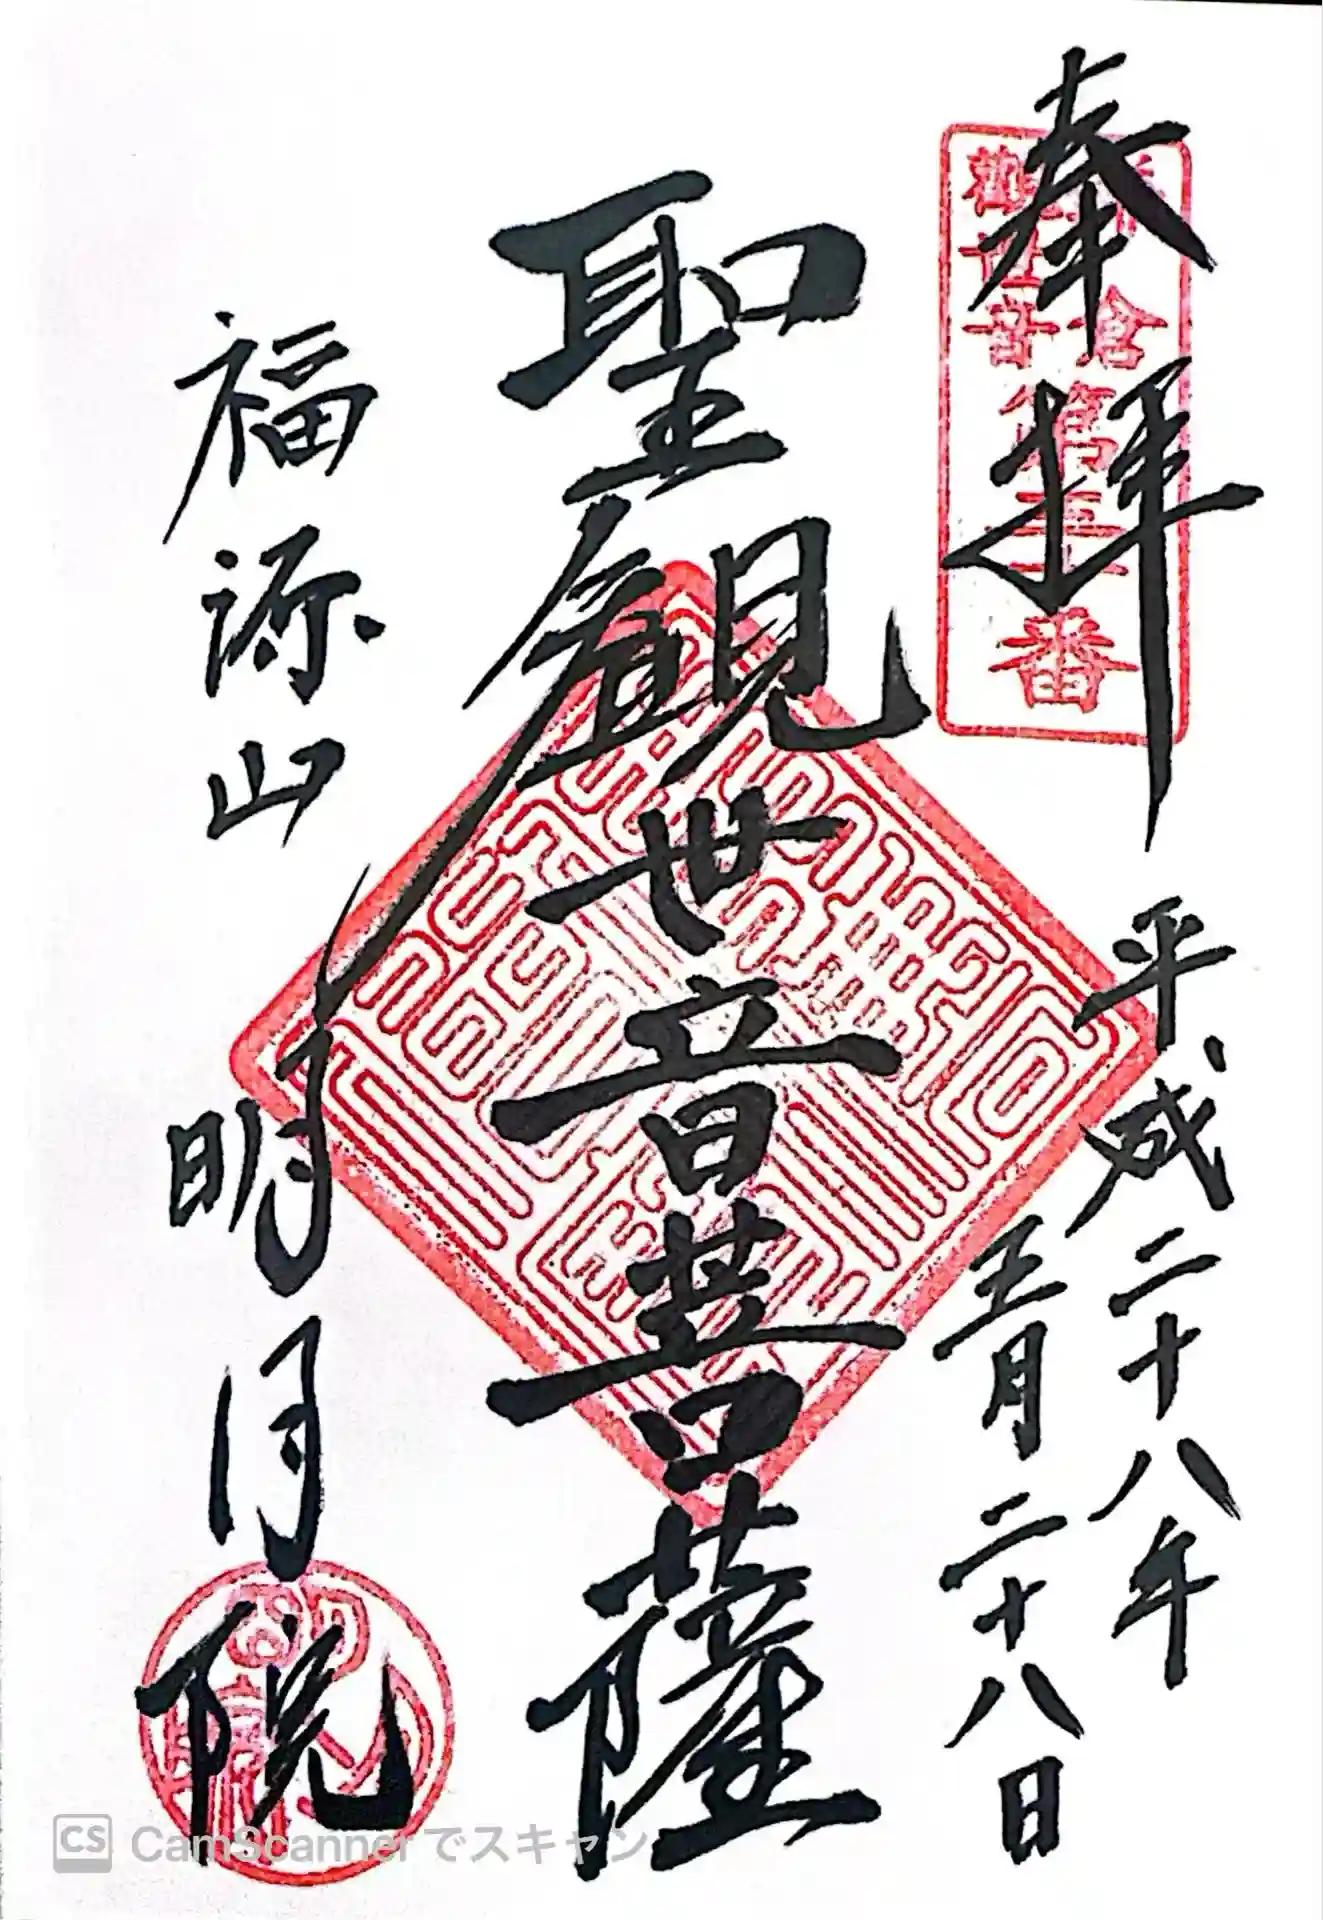 奉拝
鎌倉
觀世音
第三十番
平成二十八年
五月二十八日
聖観世音菩薩
福源山
明月院
CS CamScannerでスキャン